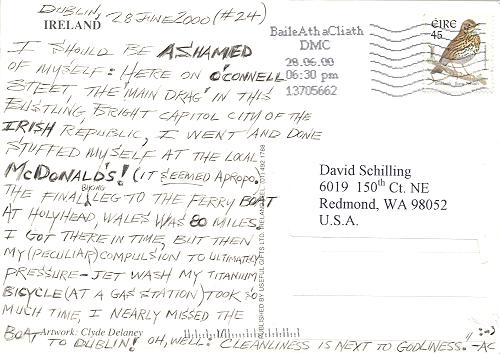 DUBLIN, 28 JUNE 2000 (#24)
IRELAND
I SHOULD BE ASHAMED
OF MYSELF: HERE ON O'CONNELL
STEET, THE 'MAIN DRAG' IN THIS
BUSTLING, BRIGHT CAPITOL CITY OF THE
IRISH REPUBLIC, I WENT AND DONE
STUFFED MYSELF AT THE LOCAL
McDONALD'S! (IT SEEMED APROPO.)
THE FINAL BIKING LEG TO THE FERRY BOAT
AT HOLYHEAD, WALES WAS 80 MILES.
I GOT THERE IN TIME, BUT THEN
MY (PECULIAR) COMPULSION TO ULTIMATELY
PRESSURE-JET WASH MY TITANIUM
BICYCLE (AT A GAS STATION) TOOK SO
MUCH TIME, I NEARLY MISSED THE
BOAT TO DUBLIN! OH, WELL: "CLEANLINESS IS NEXT TO GODLINESS." -AC
Artwork: Clyde Delaney
PUBLISHED BY USEFUL GIFTS LTD. IRELAND.
BaileAthaCliath
DMC
28.06.00
06:30 pm
13705662
ÉIRE
45
David Schilling
6019 150th Ct. NE
Redmond, WA 98052
U.S.A.